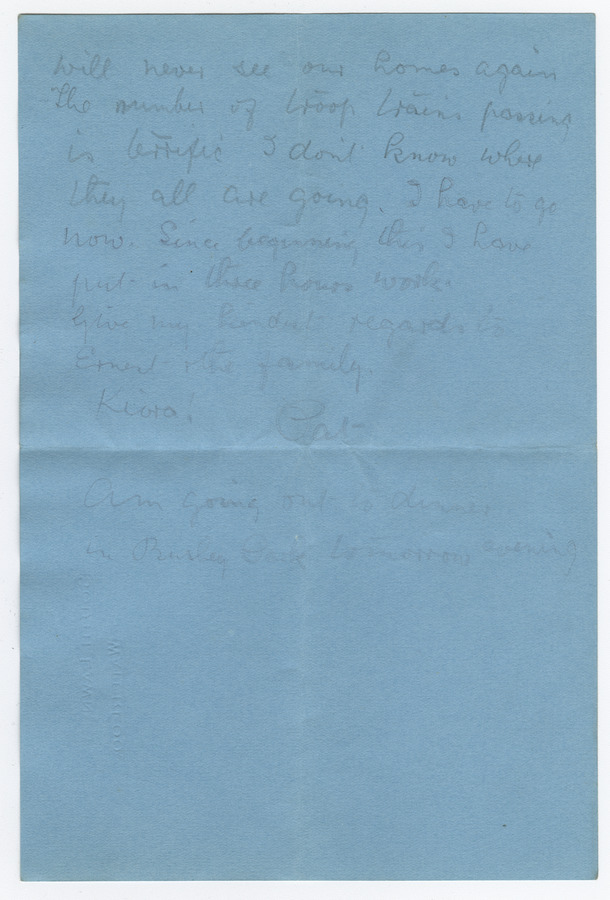 will never see our homes again
The number of troop trains passing
is terrific I don't know where
they all are going. I have to go
now. Since beginning this I have
put in three hours work.
Give my kindest regards to
Ernest & the family.
Kiora!
Pat
Am going out to dinner
in Bushey Park tomorrow evening